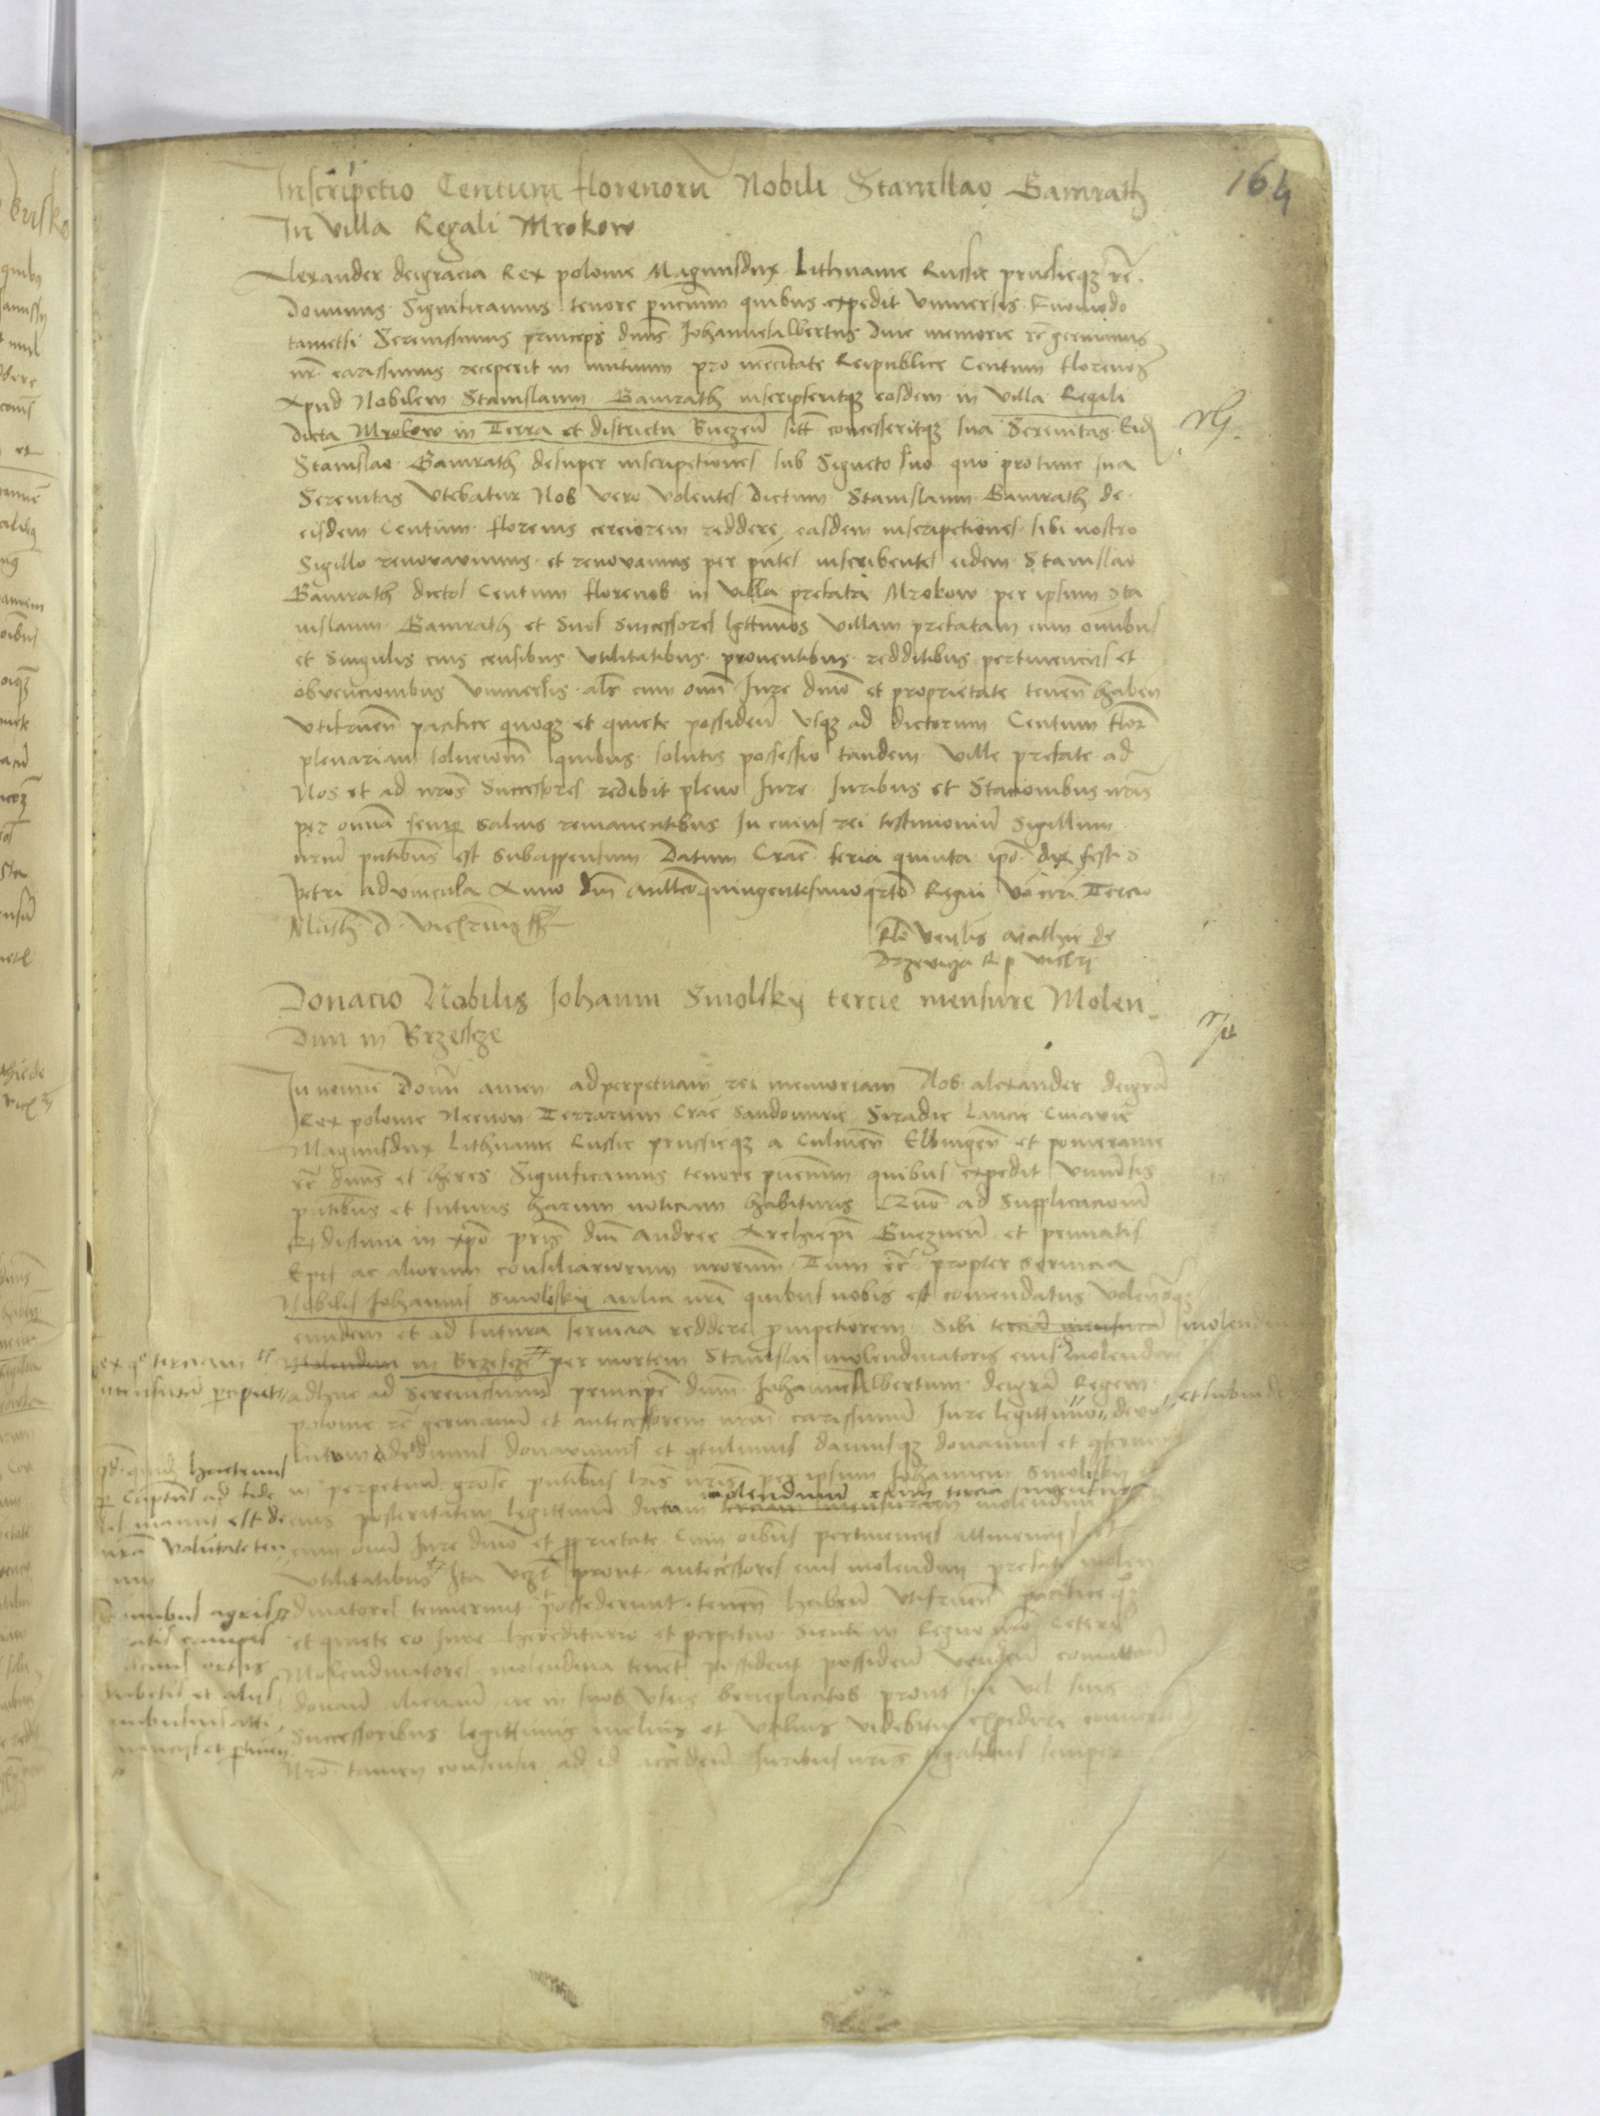 164
Inscripctio Centum florenorum Nobili Stanislao Gamrath
In villa Regali Mrokow
Alexander deigracia Rex polonie Magnusdux Lithvanie Russie prussieqz etc.
Dominus Significamus tenore pncium quibus expedit vniversis Quomodo
tametsi Serenissimus princeps dnus Johannesalbertus dive memorie etc germanus
nr carissimus receperit in mutuum pro necitate Reipublice Centum florenos
Apud Nobilem Stanislaum Gamrath inscripseritqz eosdem in villa Regali
dicta Mrokow in Terra et districtu concesseritqz sua Serenitas Eid
Stanislao Gamrath desuper inscripctiones sub Signeto suo quo protunc sua
Serenitas vtebatur Nos vero volentes dictum Stanislaum Gamrath de
eisdem Centum florenis cerciorem reddere easdem inscripctiones sibi nostro
Sigillo renovavimus et renovamus per pntes inscribentes eidem Stanislao
Gamrath dictos Centum florenos in villa prefata Mrokow per ipsum Sta
nislaum Gamrath et suos successores lgttimos villam prefatam cum omnibus
et singulis eius censibus vtilitatibus proventibus redditibus pertinenciis et
obvencionibus vniversis als cum omni Jure dnio et proprietate tenen haben
vtifruen pacifice quoqz et quiete possiden vsqz ad dictorum Centum flor
plenariam solucionem quibus solutis possessio tandem ville prefate ad
Nos et ad nros Successores redibit pleno Jure Juribus et Stacionibus nris
per omnia semper salvis remanentibus In cuius rei testimonium Sigillum
nrum pntibus est subappensum Datum Crac feria quinta ipo die festi S
petri advincula Anno dni millesimoquingentesimoqrto Regni vero nri Tercio
Math d vicecanc sst
Rlo venlis Mathie de
Drzevicza R p vicecan
Donacio Nobilis Johanni Smolsky tercie mensure Molen
dini in Brzescze
In nomine Domini amen ad perpetuam rei memoriam Nos alexander deigra
Rex polonie Necnon Terrarum Crac Sandomirie Siradie Lancie Cuiavie
Magnusdux Lithvanie Russie prussieqz a Culmen Elbingen et pomeranie
etc dnus et heres Significamus tenore pncium quibus expedit vniversis
pntibus et futuris harum noticiam habituris Quo ad Supplicacionem
Rdissimi in xpo pris dni Andree Archiepi Gneznen et primatis
ac aliorum consiliariorum nrorum Tum etc propter servicia
Nobilis Johannis Smolsky aulici nri quibus nobis est comendatus volentesqz
eundem et ad futura servicia reddere prompciorem Sibi terciam mensuram molendini
Molendini in Brzescze per mortem Stanislai molendinatoris eius molendini
ex qo terciam
mensuram percipit
adhuc ad Serenissimum principem dnum Johannem Albertum deigra Regem
polonie etc germanum et antecessorem nrum carissimum Jure legittimo devo
et subinde
lutum dedimus donavimus et contulimus damusqz donamus et conferimus
in perpetuum pntibus lris nris per ipsum Johannem Smolsky et
molendinum cum tercia mensura
eius posteritatem legittimam dictam terciam mensuram molendini
hactenus
ad fide
est de
nram volutate ten
cum omni Jure dnio et proprietate Cum oibus pertinenciis attinenciis et
vtilitatibus Ita prout antecessores eius molendini prefati molen
dinatores tenuerunt possederunt tenen haben vtifruen pacifice qz
agris
campis
ortis
rubetis et aliis
et quiete eo Jure hereditario et perpetuo sicuti in Regno nro Ceteri
Molendinatores molendina tenent possident possiden venden comuttan
donan alienan ac in suos vsus beneplacitos prout sibi vel suis
Successoribus legittimis melius et vtilius videbitur expedire convertend
Nro tamen consensu ad id acceden Juribus nris Regalibus semper